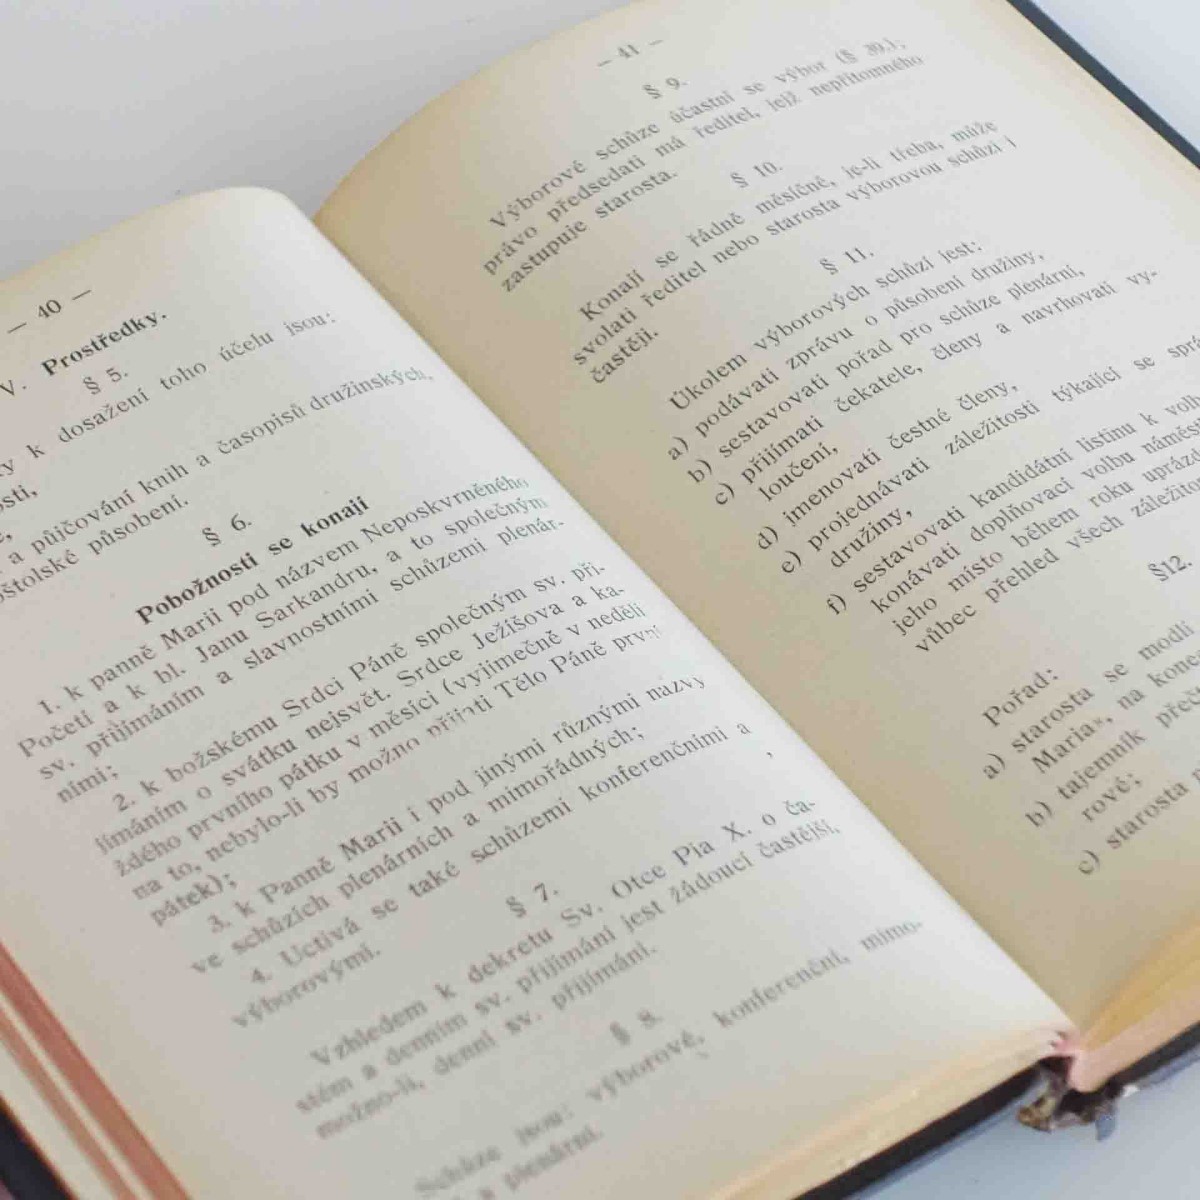 — 40 —
V. Prostředky.
§ 5.
k dosažení toho účelu jsou:
a půjčování knih a časopisů družinských,
působení.
§ 6.
Pobožnosti se konají
1. k panně Marii pod názvem Neposkvrněného
Početí a k bl. Janu Sarkandru, a to společným
sv. přijímáním a slavnostními schůzemi plenár-
ními;
2. k božskému Srdci Páně společným sv. při-
jímáním o svátku nejsvět. Srdce Ježíšova a ka-
ždého prvního pátku v měsíci (vyjímečně v neděli
na to, nebylo-li by možno přijati Tělo Páně první
pátek);
3. k Panně Marii i pod jinými různými názvy
ve schůzích plenárních a mimořádných;
4. Uctívá se také schůzemi konferenčními a
výborovými.
§ 7.
Vzhledem k dekretu Sv. Otce Pia X. o ča-
stém a denním sv. přijímání jest žádoucí častější,
možno-li, denní sv. přijímání.
§ 8.
Schůze jsou: výborové, konferenční, mimo-
a plenární.
— 41 —
§ 9.
Výborové schůze účastní se výbor (§ 39.);
právo předsedati má ředitel, jejž nepřítomného
zastupuje starosta.
§ 10.
Konají se řádně měsíčně, je-li třeba, může
svolati ředitel nebo starosta výborovou schůzi i
častěji.
§ 11.
Úkolem výborových schůzí jest:
a) podávati zprávu o působení družiny,
b) sestavovati pořad pro schůze plenární,
c) přijímati čekatele, členy a navrhovati vy-
loučení,
d) jmenovati čestné členy,
e) projednávati záležitosti týkající se
družiny,
f) sestavovati kandidátní listinu k
konávati doplňovací volbu
jeho místo během roku
vůbec přehled všech
§12.
Pořad:
a) starosta se modlí
Maria“, na
b) tajemník
rové;
c) starosta